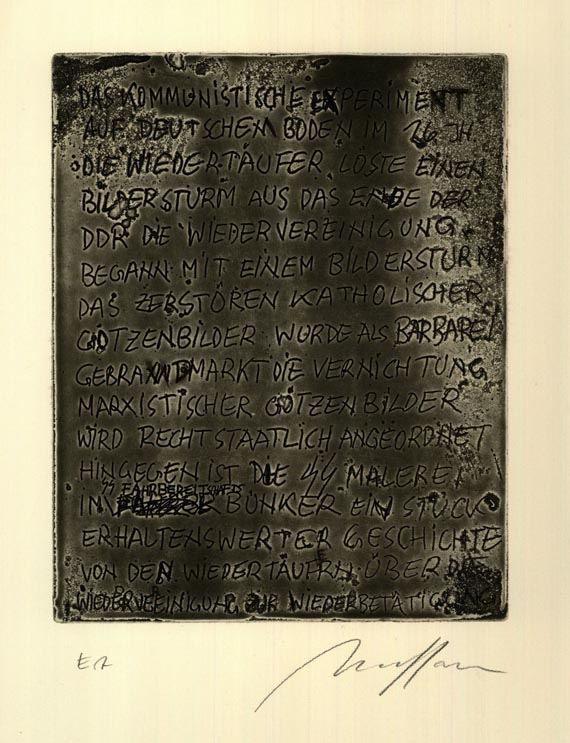 DAS KOMMUNISTISCHE EXPERIMENT
AUF DEUTSCHEM BODEN IM 16 JH
DIE WIEDERTÄUFER LÖSTE EINEN
BILDERSTURM AUS DAS ENDE DER
DDR DIE WIEDERVEREINIGUNG
BEGANN MIT EINEM BILDERSTURM
DAS ZERSTÖREN KATHOLISCHER
GÖTZENBILDER WURDE ALS BARBAREI
GEBRANDMARKT DIE VERNICHTUNG
MARXISTISCHER GÖTZENBILDER
WIRD RECHTSTAATLICH ANGEORDNET
HINGEGEN IST DIE SS MALEREI
IM SS FAHRBEREITSCHAFTS BUNKER EIN STÜCK
ERHALTENSWERTER GESCHICHTE
VON DEN WIEDERTÄUFERN ÜBER DIE
WIEDERVEREINIGUNG ZUR WIEDERBETÄTIGUNG
E.A